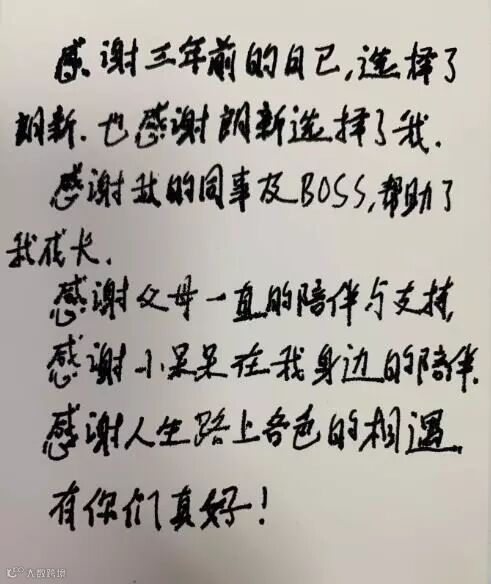 感谢三年前的自己,选择了
朗新.也感谢朗新选择了我.
感谢我的同事及BOSS,帮助了
我成长.
感谢父母一直的陪伴与支持,
感谢小呆呆在我身边的陪伴.
感谢人生路上各色的相遇.
有你们真好!
大数跨境